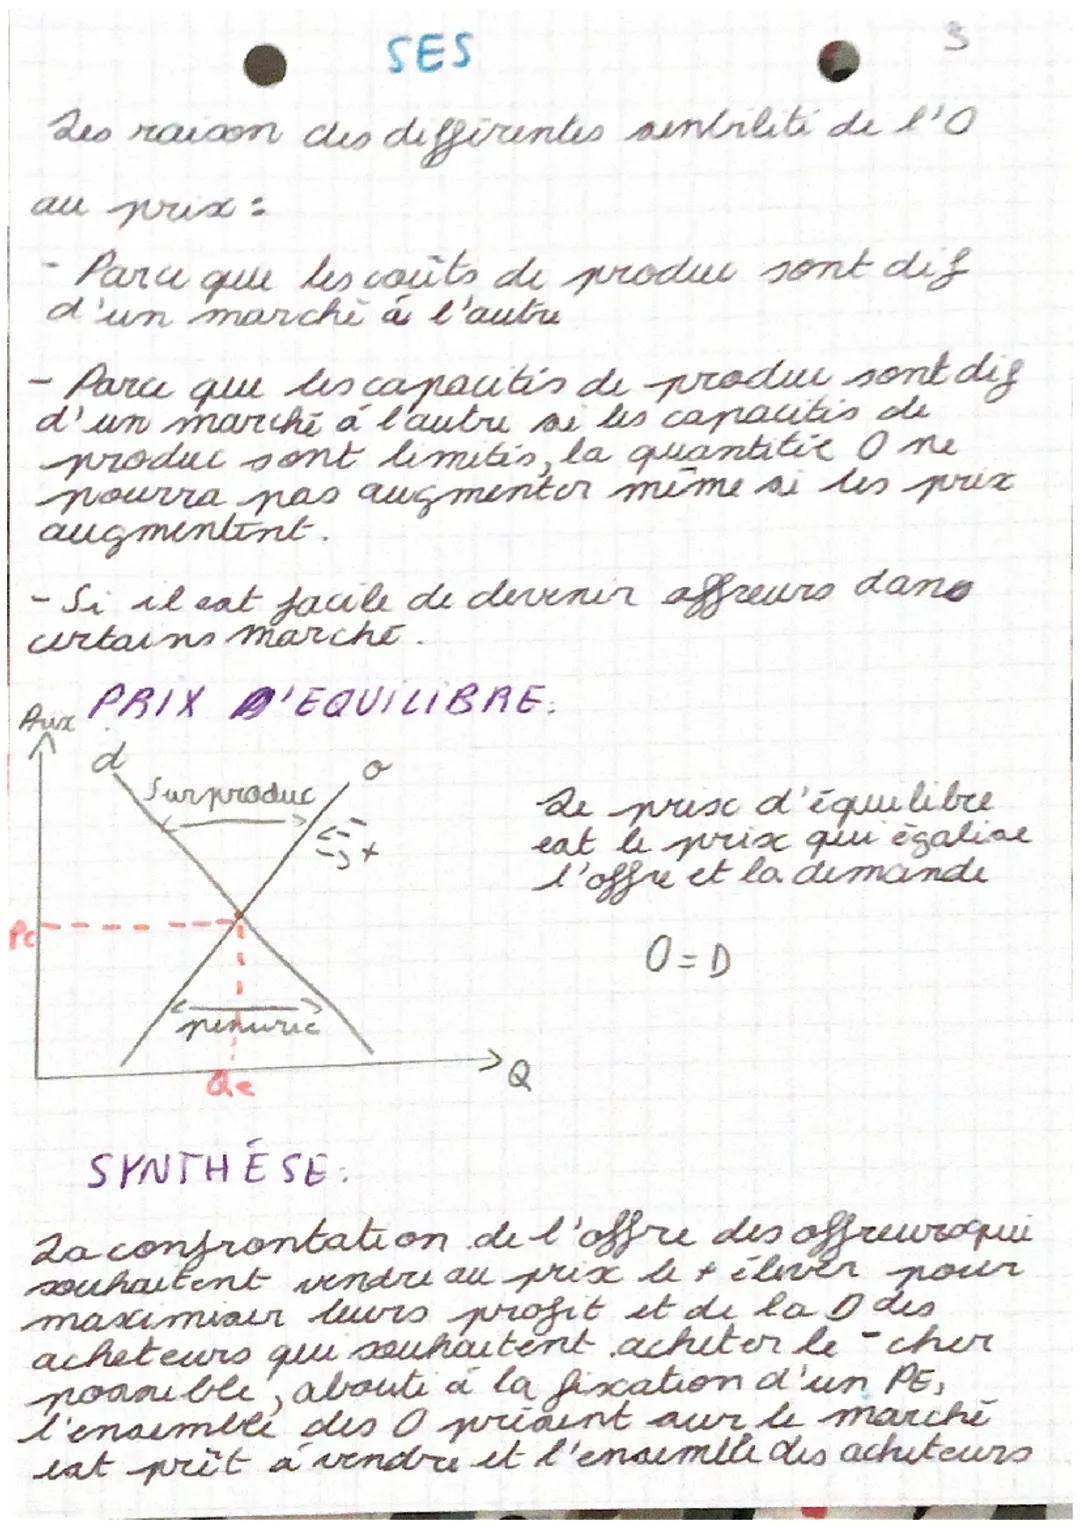 SES
3
Les raison des différentes sensbilité de l'O
au prix :
- Parce que les coûts de produc sont dif
d'un marché à l'autre
- Parce que les capacités de produc sont dif
d'un marché à l'autre si les capacités de
produc sont limités, la quantitée O ne
pourra pas augmenter même si les prix
augmentent.
- Si il est facile de devenir offreurs dans
certains marché.
PRIX D'EQUILIBRE:
Prix
d
o
Surproduc
-
+
Pe
penurie
Qe
Q
Le prix d'équilibre
est le prix qui égalise
l'offre et la demande
O = D
SYNTHÈSE:
La confrontation de l'offre des offreurs qui
souhaitent vendre au prix le + élever pour
maximiser leurs profit et de la D des
acheteurs qui souhaitent acheter le - cher
possible, abouti à la fixation d'un PE,
l'ensemble des O présent sur le marché
est prêt à vendre et l'ensemble des acheteurs